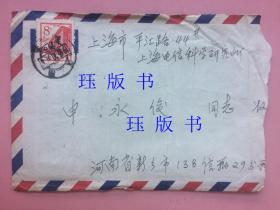 8
上海市 平江路44号
上海电信科学研究所
申永俊 同志 收
河南省新乡市138信箱29分
珏版书 珏版书
珏版书 珏版书